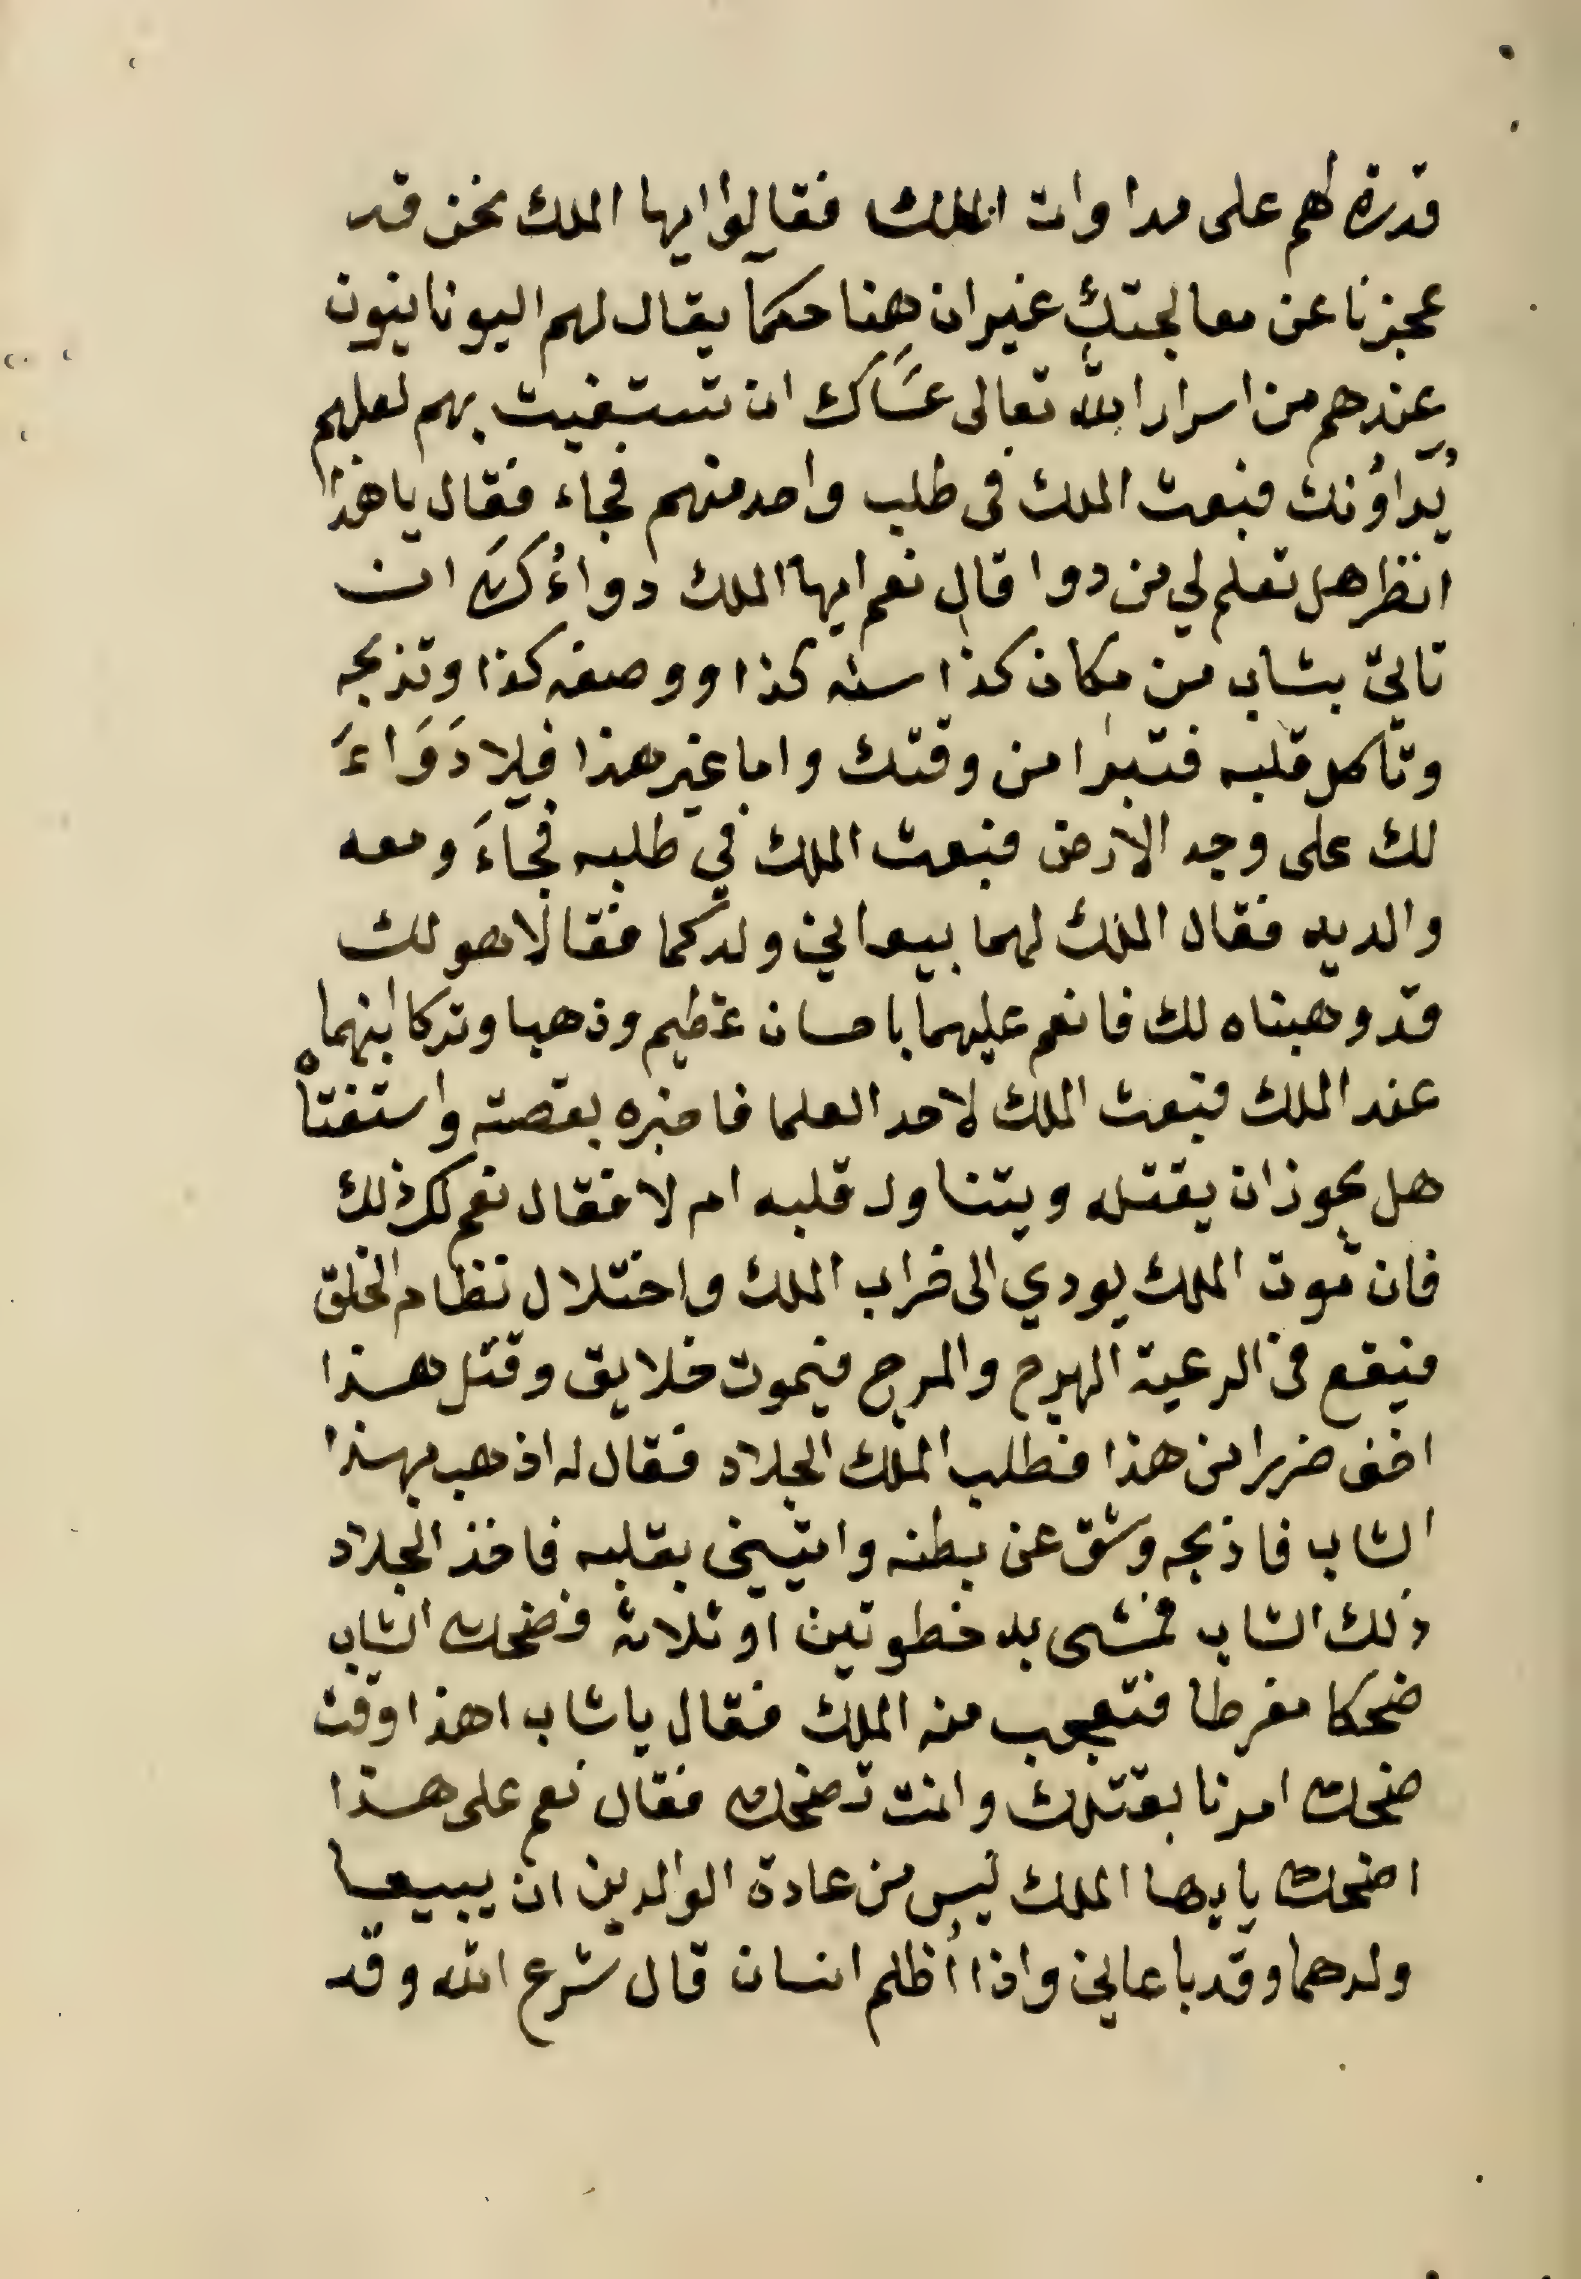 قدرة لهم على مداوات الملك فقالوا ايها الملك نحن قد
عجزنا عن معالجتك غير ان هنا حكمآ يقال لهم اليونانيون
عندهم من اسرار الله تعالى عَسَاك ان تستغيث بهم لعلهم
يُداوُنك فبعث الملك فى طلب واحد منهم فجاء فقال يا هذا
انظر هل تعلم لي من دوا قال نعم ايها الملك دواءُكَ ان
تاتي بشاب من مكان كذا سنه كذا ووصفه كذا وتذبحه
وتاكل قلبه فتبرا من وقتك واما غير هذا فلا دَوَاءَ
لك على وجه الأرض فبعث الملك في طلبه فجاءَ ومعه
والديه فقال الملك لهما بيعاني ولدكما فقالا هو لك
قد وهبناه لك فانعم عليهما باحسان عظيم وذهبا وتركا ابنهما
عند الملك فبعث الملك لاحد العلما فاخبره بقصته واستفتاه
هل يجوز ان يقتله ويتناول قلبه ام لا فقال نعم لك ذلك
فان موت الملك يودي الى خراب الملك واختلال نظام الخلق
فيقع في الرعية الهرج والمرج فيموت خلايق وقتل هذا
اخف ضررا من هذا فطلب الملك الجلاد فقال له اذهب بهذا
الشاب فاذبحه وشق عن بطنه وايتيني بقلبه فاخذ الجلاد
ذلك الشاب فمشى به خطوتين او ثلاثة فضحك الشاب
ضحكا مفرطا فتعجب منه الملك فقال يا شاب اهذا وقت
ضحك امرنا بقتلك وانت تضحك فقال نعم على هذا
اضحك يايها الملك ليس من عادة الوالدين ان يبيعا
ولدهما وقد باعاني واذا أظلم انسان قال شرع الله وقد